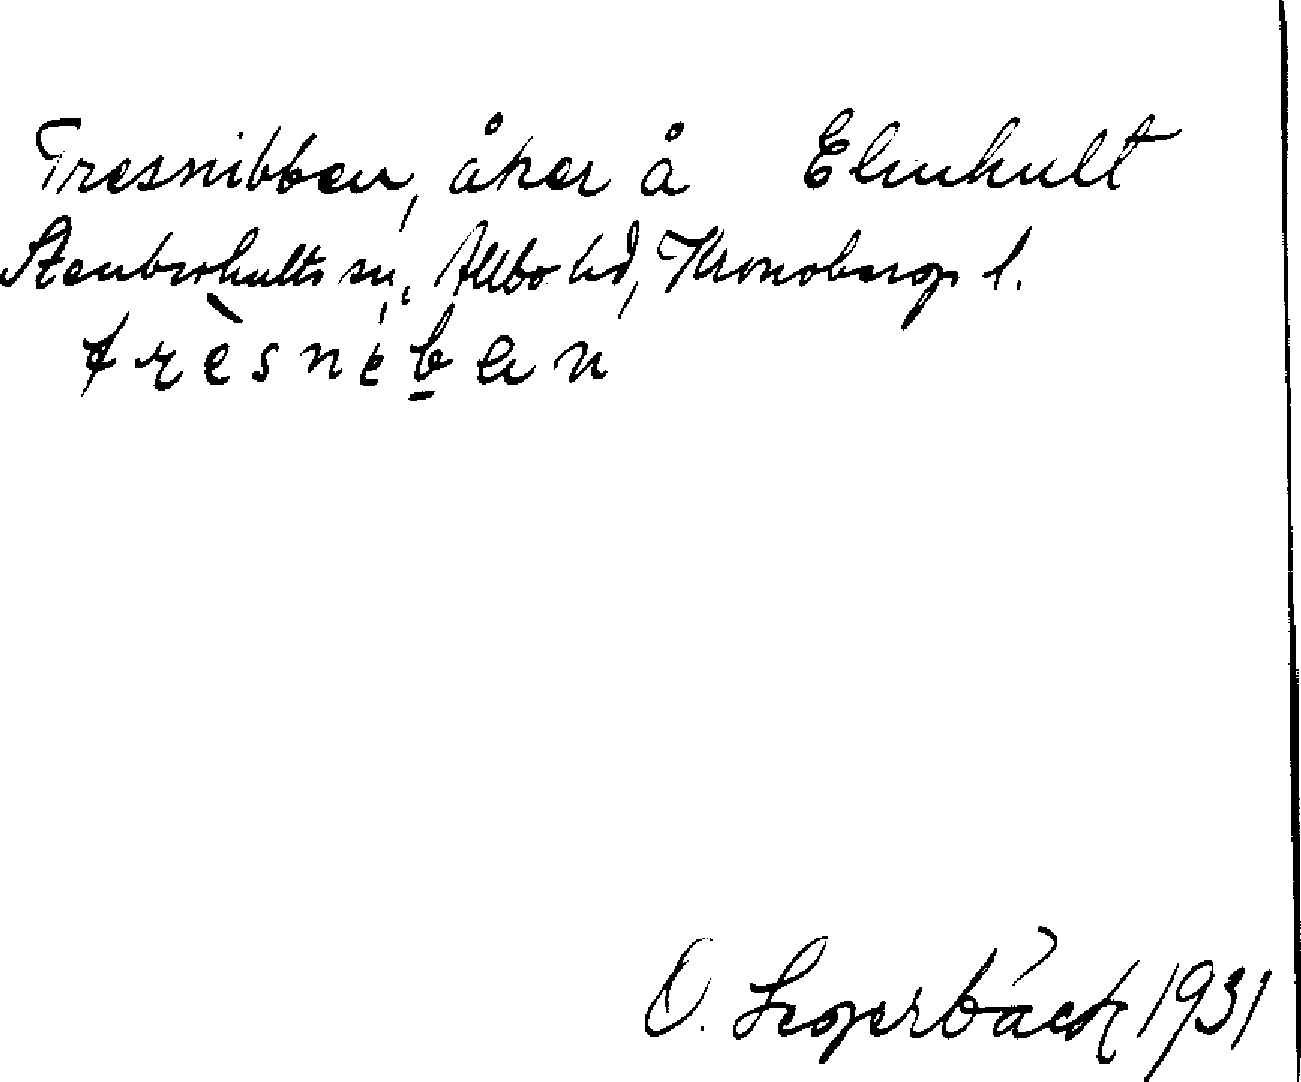 Tresnibben, åker å Elmhult
Stenbrohults sn, Allbo hd, Kronobergs l.
trèsniban
O. Segerbäck 1931